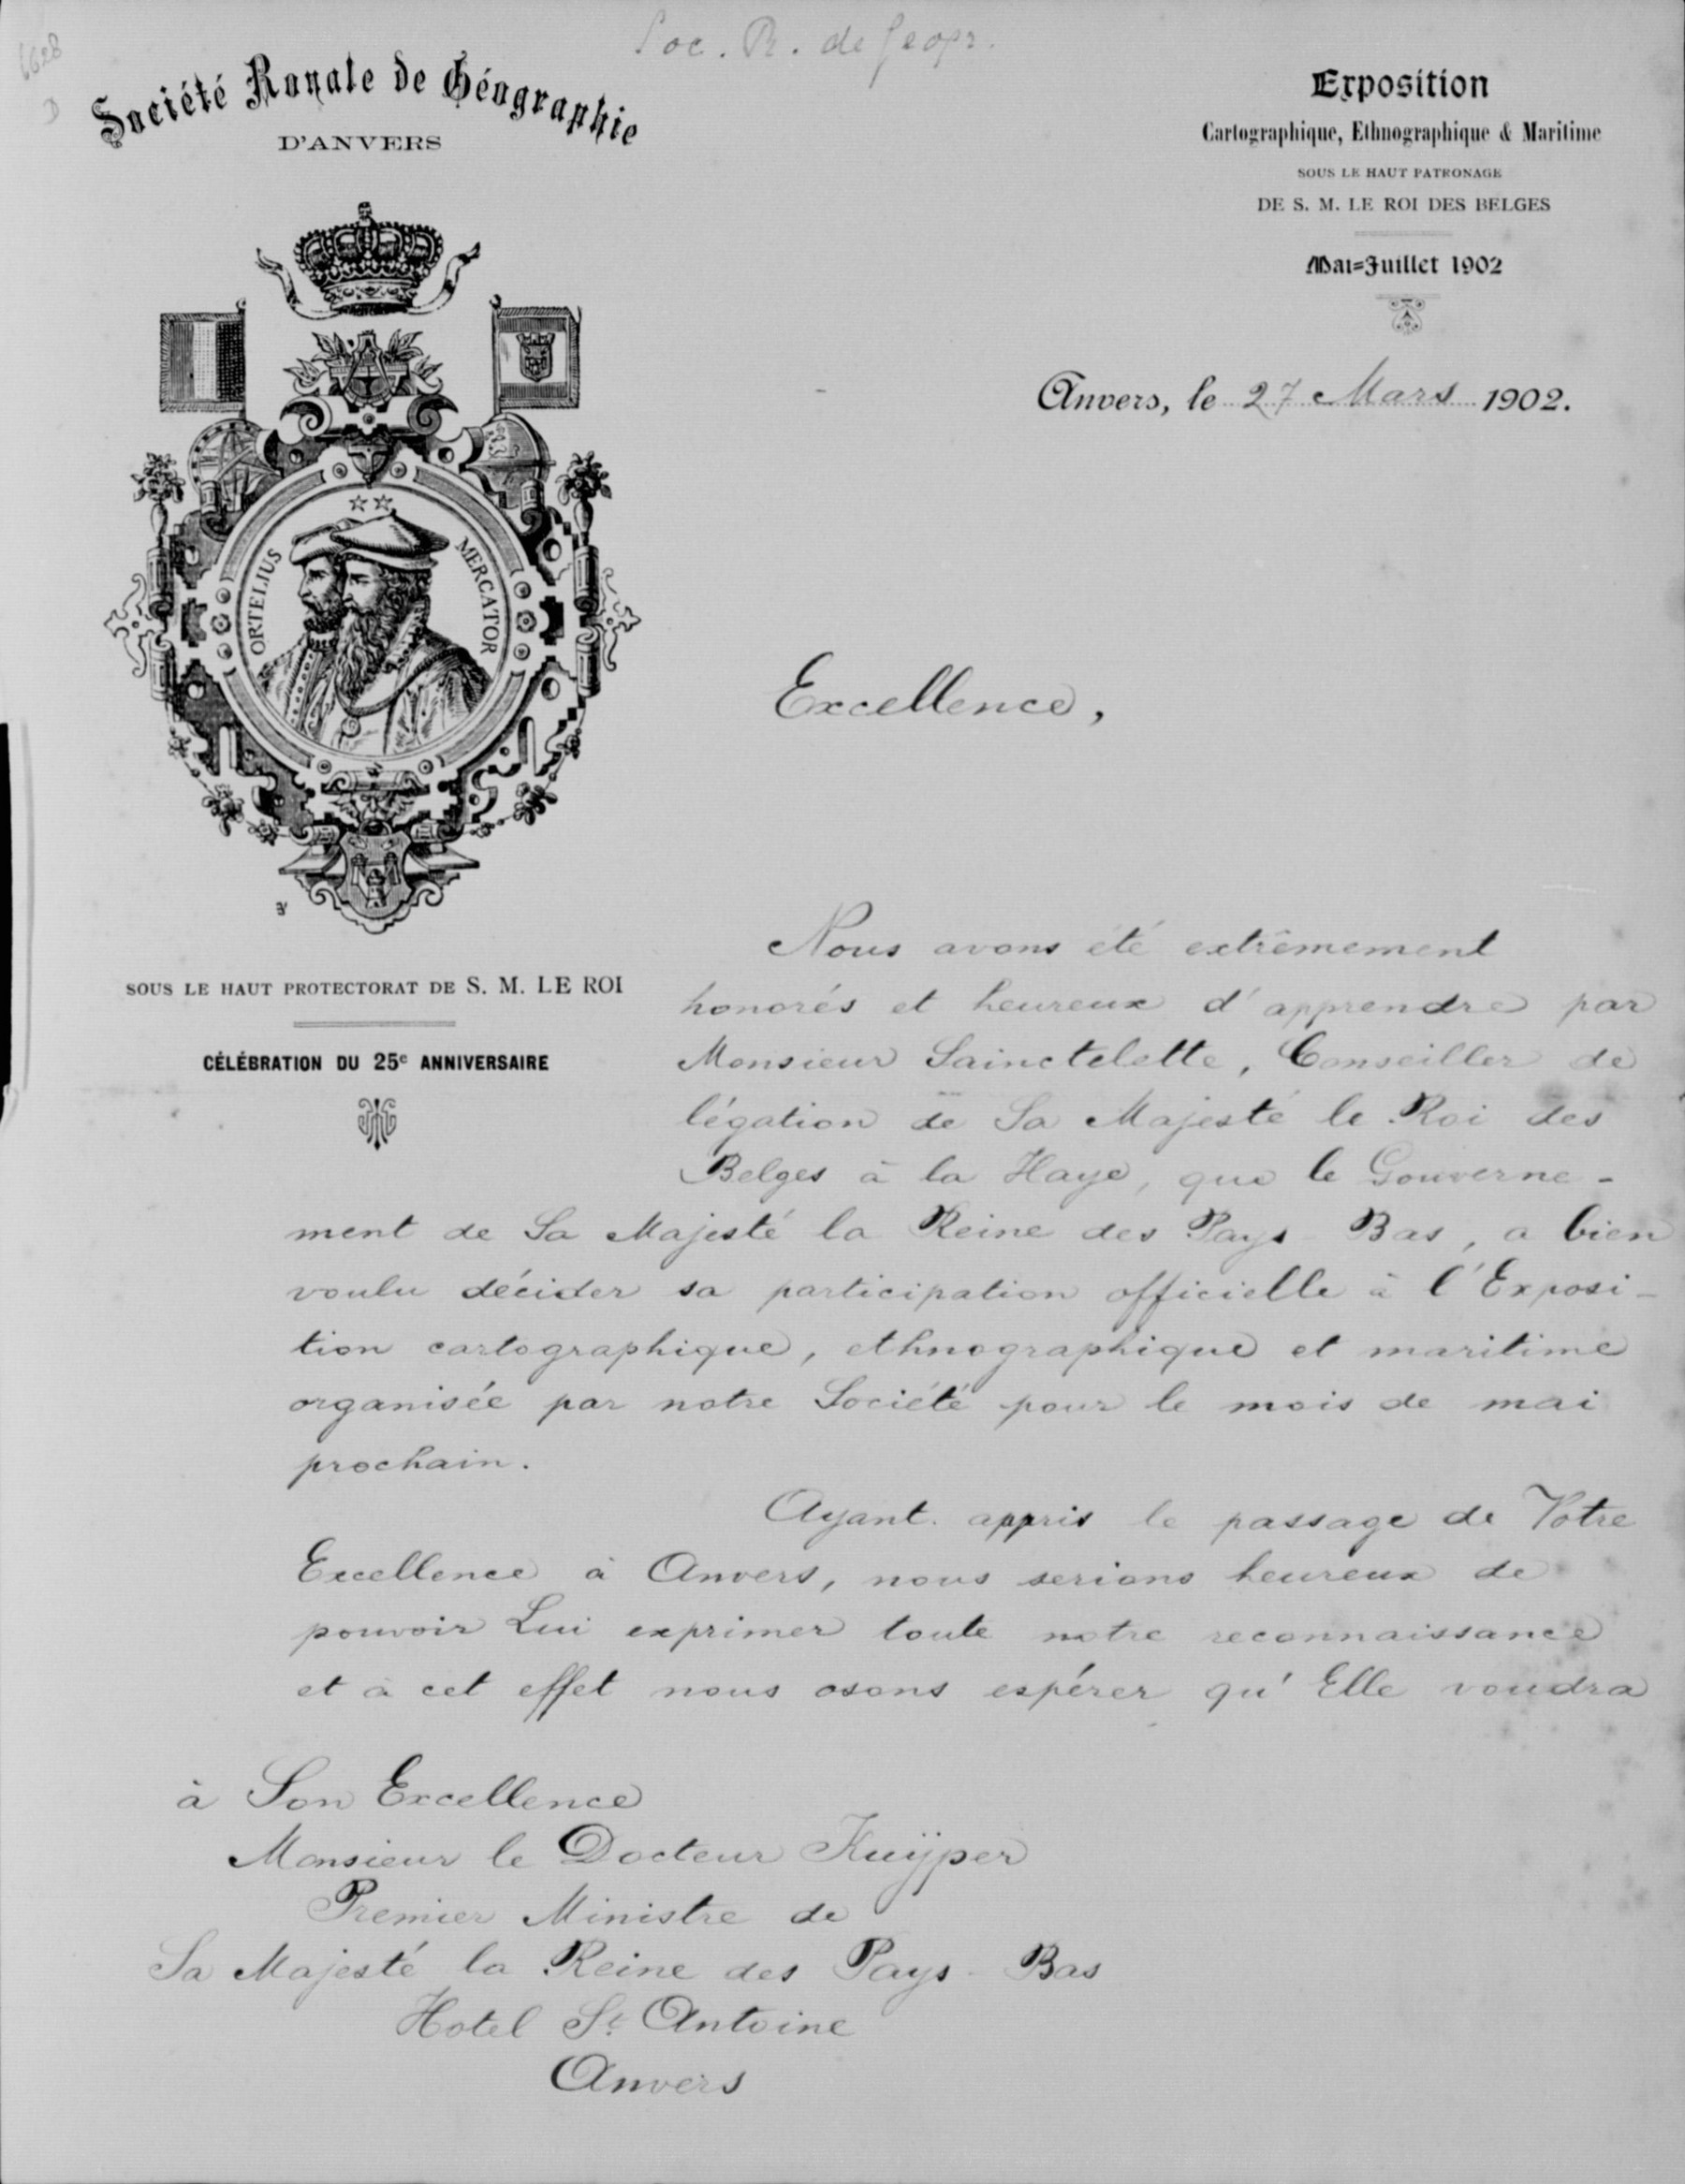 6628
D
Soc. R. de Geogr.
Société Royale de Géographie
D'ANVERS
Exposition
Cartographique, Ethnographique & Maritime
SOUS LE HAUT PATRONAGE
DE S. M. LE ROI DES BELGES
Mai=Juillet 1902
Anvers, le 27 Mars 1902.
ORTELIUS
MERCATOR
SOUS LE HAUT PROTECTORAT DE S. M. LE ROI
CÉLÉBRATION DU 25e ANNIVERSAIRE
Excellence,
Nous avons été extrêmement
honorés et heureux d'apprendre par
Monsieur Sainctelette, Conseiller de
légation de Sa Majesté le Roi des
Belges à la Haye, que le Gouverne-
ment de Sa Majesté la Reine des Pays-Bas, a bien
voulu décider sa participation officielle à l'Exposi-
tion cartographique, ethnographique et maritime
organisée par notre Société pour le mois de mai
prochain.
Ayant appris le passage de Votre
Excellence à Anvers, nous serions heureux de
pouvoir Lui exprimer toute notre reconnaissance
et à cet effet nous osons espérer qu'Elle voudra
à Son Excellence
Monsieur le Docteur Kuÿper
Premier Ministre de
Sa Majesté la Reine des Pays-Bas
Hotel St Antoine
Anvers